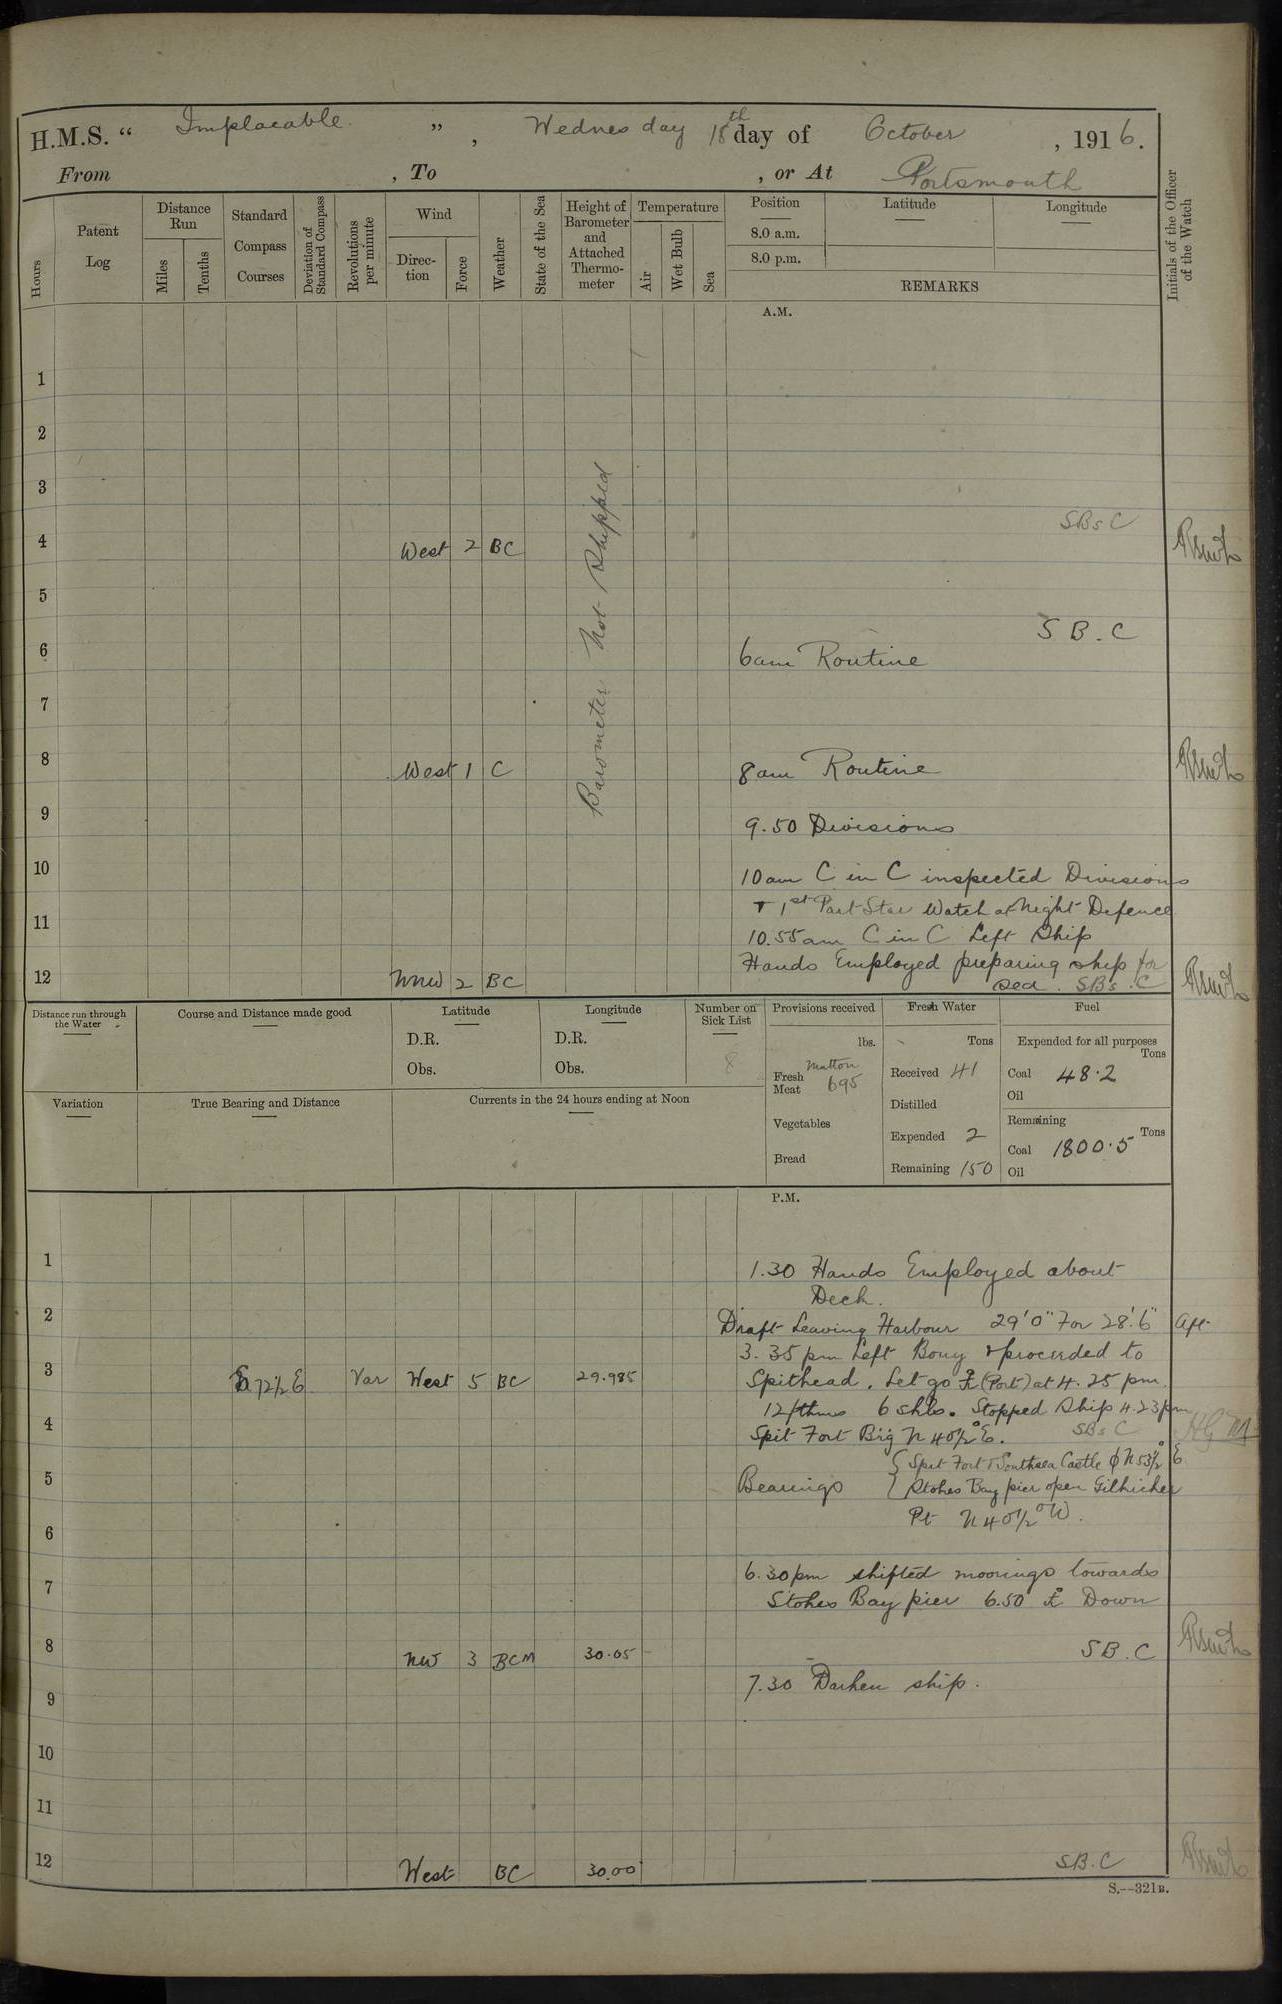 H.M.S. “ Implacable ” , Wednesday 18th day of October , 1916.
From , To , or At Portsmouth
Hours
Patent Log
Distance Run
Miles
Tenths
Standard Compass Courses
Deviation of Standard Compass
Revolutions per minute
Wind
Direction
Force
Weather
State of the Sea
Height of Barometer and Attached Thermometer
Temperature
Air
Wet Bulb
Sea
Position
8.0 a.m.
8.0 p.m.
Latitude
Longitude
REMARKS
Initials of the Officer of the Watch
A.M.
1
2
3
Barometer Not Shipped
SBs C
4 West 2 BC
5
S B. C
6 6am Routine
7
8 West 1 C 8am Routine
9 9.50 Divisions
10 10am C in C inspected Divisions
+ 1st Part Star Watch at Night Defence
11 10.55am C in C Left Ship
Hands Employed preparing ship for
12 NNW 2 BC sea. SBs. C
Distance run through the Water
Course and Distance made good
Latitude
D.R.
Obs.
Longitude
D.R.
Obs.
Number on Sick List
8
Provisions received
lbs.
Fresh Meat Mutton 695
Vegetables
Bread
Fresh Water
Tons
Received 41
Distilled
Expended 2
Remaining 150
Fuel
Expended for all purposes
Tons
Coal 48.2
Oil
Remaining
Tons
Coal 1800.5
Oil
Variation
True Bearing and Distance
Currents in the 24 hours ending at Noon
P.M.
1 1.30 Hands Employed about
Deck.
2 Draft Leaving Harbour 29'0" For 28'.6" Aft.
3.35 pm Left Bouy & proceeded to
3 72½ E Var West 5 BC 29.985 Spithead. Let go (Port) at 4.25 pm.
12 fthms 6 shls. Stopped Ship 4.23pm
4 Spit Fort Brg N 40½° E. SBs C
Spit Fort & Southsea Castle ϕ N 53½° E
5 Bearings Stokes Bay pier open Gilkicker
Pt N 40½° W.
6
6.30pm shifted moorings towards
7 Stokes Bay pier 6.50 Down
8 NW 3 BCM 30.05 SB. C
7.30 Darken ship.
9
10
11
12 West BC 30.00 SB. C
S.—321B.